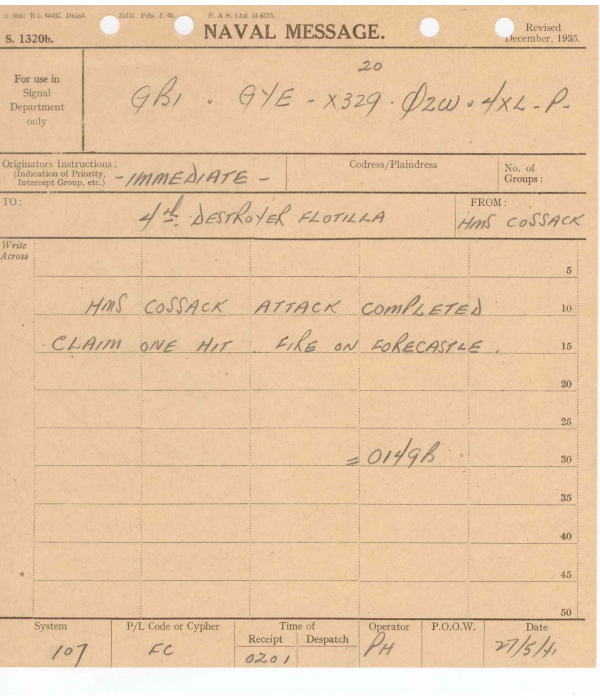 NAVAL MESSAGE.
S. 1320b.
Revised
December, 1935.
For use in
Signal
Department
only
20
GBI . GYE - X329 . Ø2W . 4XL - P -
Originators Instructions:
(Indication of Priority,
Intercept Group, etc.)
- IMMEDIATE -
Codress/Plaindress
No. of
Groups:
TO:
4th DESTROYER FLOTILLA
FROM:
HMS COSSACK
Write
Across
5
HMS COSSACK ATTACK COMPLETED
10
CLAIM ONE HIT . FIRE ON FORECASTLE .
15
20
25
= 0149B
30
35
40
45
50
System
P/L Code or Cypher
Time of
Receipt
Despatch
Operator
P.O.O.W.
Date
107
FC
0201
PH
27/5/41